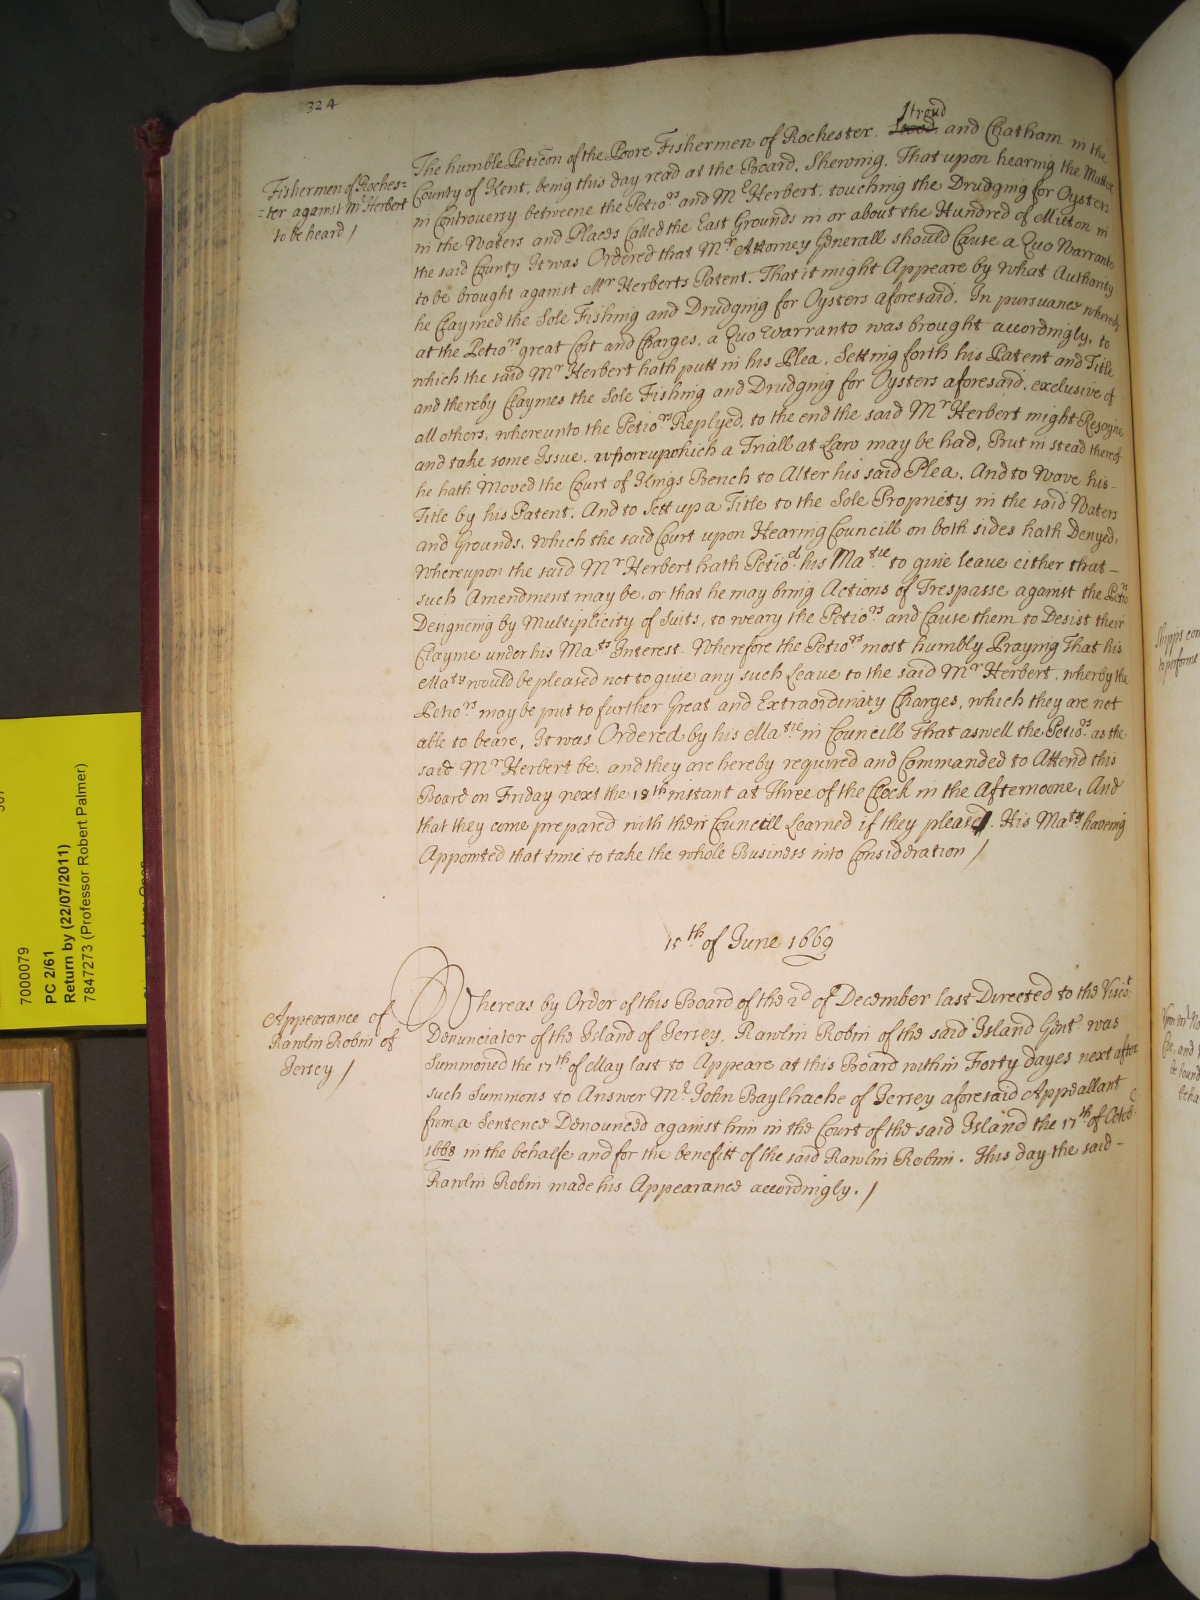 324
Fishermen of Roches=
=ter against Mr Herbert
to be heard /
The humble Peticõn of the Poore Fishermen of Rochester, Stroud and Chatham in the
County of Kent, being this day read at the Board. Shewing, That upon hearing the Matter
in Controversy betweene the Petiors and Mr Herbert, touching the Drudging for Oysters
in the Waters and Places Called the East Grounds in or about the Hundred of Milton in
the said County It was Ordered that Mr Attorney Generall should Cause a Quo Warranto
to be brought against Mr Herberts Patent, That it might Appeare by what Authority
he Claymed the Sole Fishing and Drudging for Oysters aforesaid. In pursuance whereof,
at the Petiors great Cost and Charges, a Quo Warranto was brought accordingly, to
which the said Mr Herbert hath putt in his Plea, Setting forth his Patent and Title
and thereby Claymes the Sole Fishing and Drudging for Oysters aforesaid, exclusive of
all others, whereunto the Petiors Replyed, to the end the said Mr Herbert might Rejoyne
and take some Issue, whereupon which a Triall at Law may be had, But in stead thereof
he hath Moved the Court of Kings Bench to Alter his said Plea, And to Wave his -
Title by his Patent, And to Sett up a Title to the Sole Propriety in the said Waters
and Grounds, Which the said Court upon Hearing Councill on both sides hath Denyed,
Whereupon the said Mr Herbert hath Petiod his Matie to give leave either that -
such Amendment may be, or that he may bring Actions of Trespasse against the Petiors
Designeing by Multiplicity of Suits, to weary the Petiors and Cause them to Desist their
Clayme under his Mats Interest. Wherefore the Petiors most humbly Praying That his
Maty would be pleased not to give any such Leave to the said Mr Herbert, wherby the
Petiors may be put to further Great and Extraordinary Charges, which they are not
able to beare, It was Ordered by his Matie in Councill That aswell the Petiors as the
said Mr Herbert be, and they are hereby required and Commanded to Attend this
Board on Friday next the 18th instant at Three of the Clock in the Afternoone, And
that they come prepared with their Councill Learned if they please. His Maty haveing
Appointed that time to take the whole Business into Consideration /
15th of June 1669
Appearance of
Rawlin Robin of
Jersey /
Whereas by Order of this Board of the 2d of December last Directed to the Visct
Denunciator of the Island of Jersey, Rawlin Robin of the said Island Gent was
Summoned the 17th of May last to Appeare at this Board within Forty dayes next after
such Summons to Answer Mr John Baylhache of Jersey aforesaid Appeallant
from a Sentence Denounced against him in the Court of the said Island the 17th of Octobr
1668 in the behalfe and for the benefitt of the said Rawlin Robin. This day the said -
Rawlin Robin made his Appearance accordingly. /
7000079
PC 2/61
Return by (22/07/2011)
7847273 (Professor Robert Palmer)